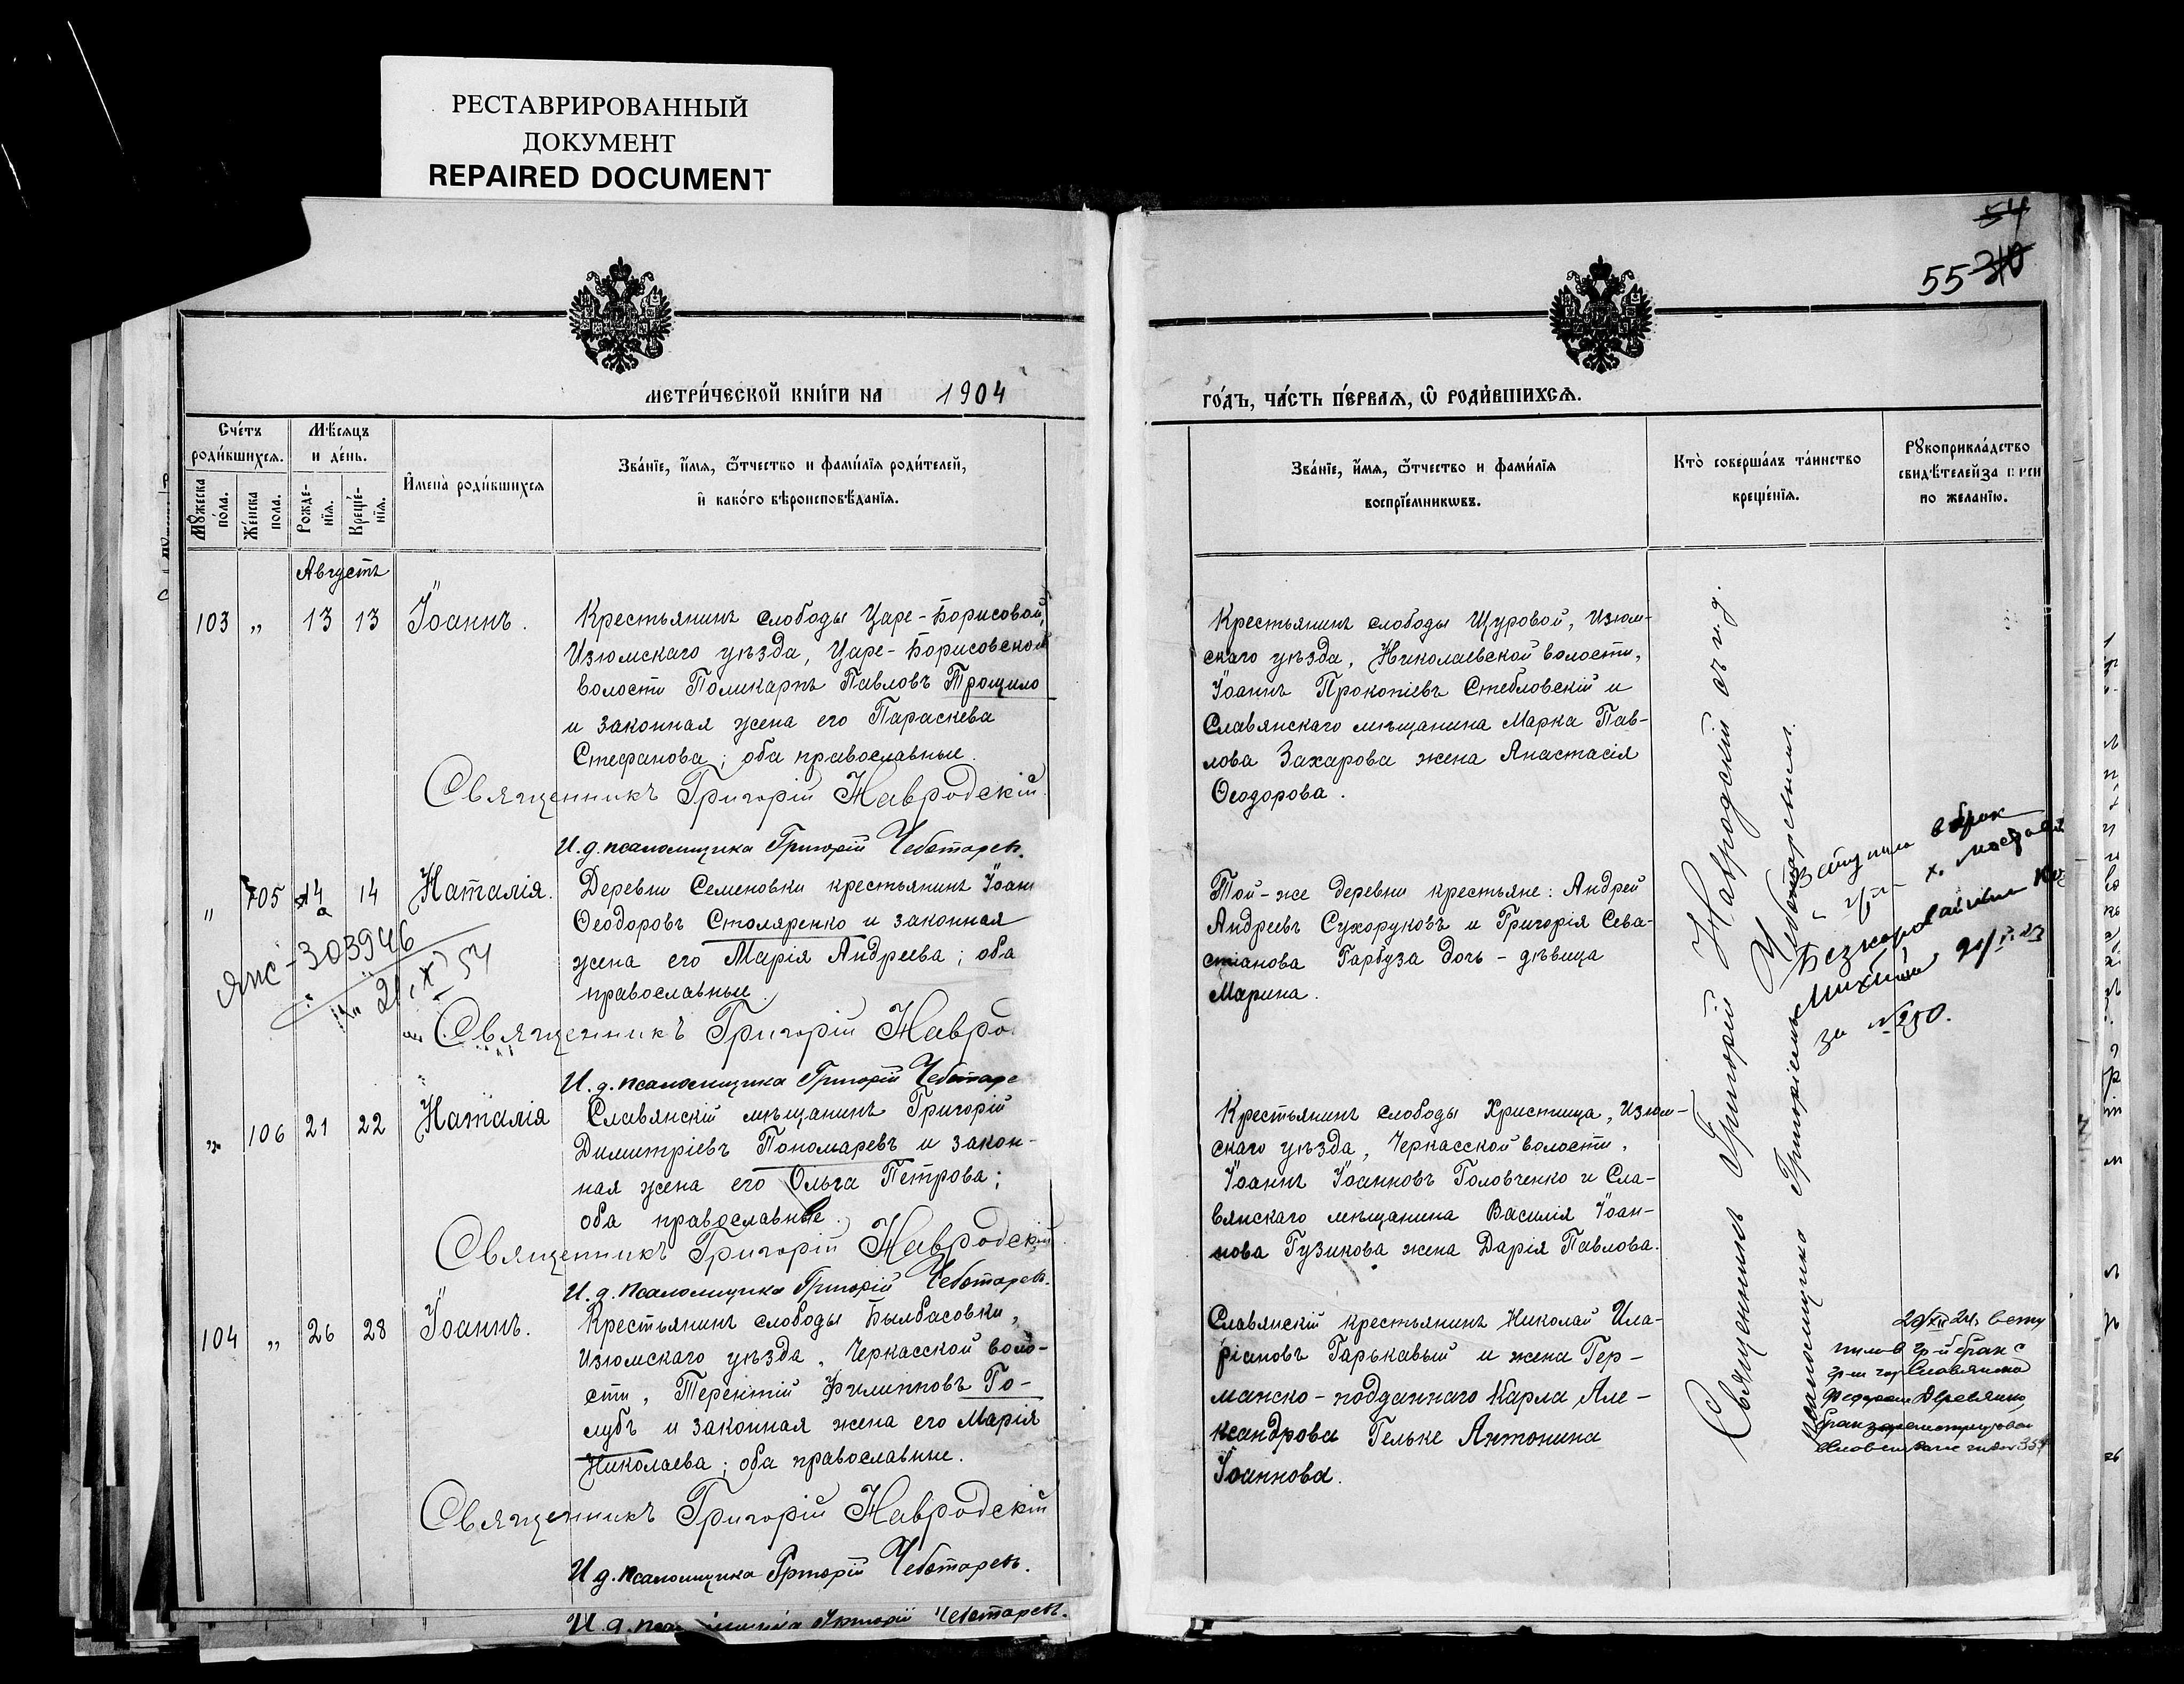 РЕСТАВРИРОВАННЫЙ
ДОКУМЕНТ
REPAIRED DOCUMENT
54
55 310
МЕТРИ́ЧЕСКОЙ КНИ́ГИ НА 1904
ГО́ДЪ, ЧА́СТЬ ПЕ́РВАѦ, Ѡ РОДИ́ВШИХСѦ.
Сче́тъ
роди́вшихсѧ.
Мꙋжеска
по́ла.
Же́нска
пола.
Мѣ́сѧцъ
и де́нь.
Рожде-
нїѧ.
Креще́-
нїѧ.
И҆мена̀ роди́вшихсѧ
Зва́нїе, и҆́мѧ, ѻ҆́тчество и фами́лїѧ роди́телей,
и҆ како́го вѣроисповѣ́данїѧ.
Зва́нїе, и҆́мѧ, ѻ҆́тчество и фами́лїѧ
воспрїе́мникѡвъ.
Кто̀ соверша́лъ та́инство
креще́нїѧ.
Рꙋкоприкла́дство
свидѣ́телей за
по жела́нїю.
Августъ
103 „ 13 13 Іоаннъ.
Крестьянинъ слободы Царе-Борисовой,
Изюмскаго уѣзда, Царе-Борисовской
волости Поликарпъ Павловъ Трощило
и законная жена его Параскева
Стефанова; оба православные.
Священникъ Григорій Навродскій.
И.д. псаломщика Григорій Чеботаревъ.
Крестьянинъ слободы Щуровой, Изюм-
скаго уѣзда, Николаевской волости,
Іоаннъ Прокопіевъ Стебловскій и
Славянскаго мѣщанина Марка Пав-
лова Захарова жена Анастасія
Ѳеодорова.
„ 105 14 14 Наталія.
Деревни Семеновки крестьянинъ Іоан
Ѳеодоровъ Столяренко и законная
жена его Марія Андреева; оба
православные.
303946
21 X 54
Священникъ Григорій Навро
И.д. псаломщика Григорій Чеботаре
Той-же деревни крестьяне: Андрей
Андреевъ Сухоруковъ и Григорія Сева-
стіанова Гарбуза дочь-дѣвица
Марина.
вступила в брак
с гр.
за № 250.
„ 106 21 22 Наталія
Славянскій мѣщанинъ Григорій
Димитріевъ Пономаревъ и закон-
ная жена его Ольга Петрова;
оба православные.
Священникъ Григорій Навродскій
И.д. псаломщика Григорій Чеботаревъ.
Крестьянинъ слободы Христища, Изюм-
скаго уѣзда, Черкасской волости,
Іоаннъ Іоанновъ Головченко и Сла-
вянскаго мѣщанина Василія Іоан-
нова Гузикова жена Дарія Павлова.
104 „ 26 28 Іоаннъ.
Крестьянинъ слободы Былбасовки,
Изюмскаго уѣзда, Черкасской воло-
сти, Терентій Филипповъ Го-
лубъ и законная жена его Марія
Николаева; оба православные.
Священникъ Григорій Навродскій
И д. псаломщика Григорій Чеботаревъ.
Славянскій крестьянинъ Николай Ила-
ріановъ Гарькавый и жена Гер-
манско-подданнаго Карла Але-
ксандрова Гельке Антонина
Іоаннова.
всту
пил в гр-й брак с
гр-н гор Славянска
Священникъ Григорій Навродскій съ и.д.
псаломщика Григоріемъ Чеботаревымъ.
И.д. Григорій Чеботаревъ.